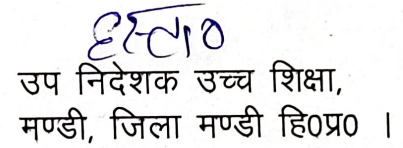 हस्ता०
उप निदेशक उच्च शिक्षा,
मण्डी, जिला मण्डी हि०प्र० ।